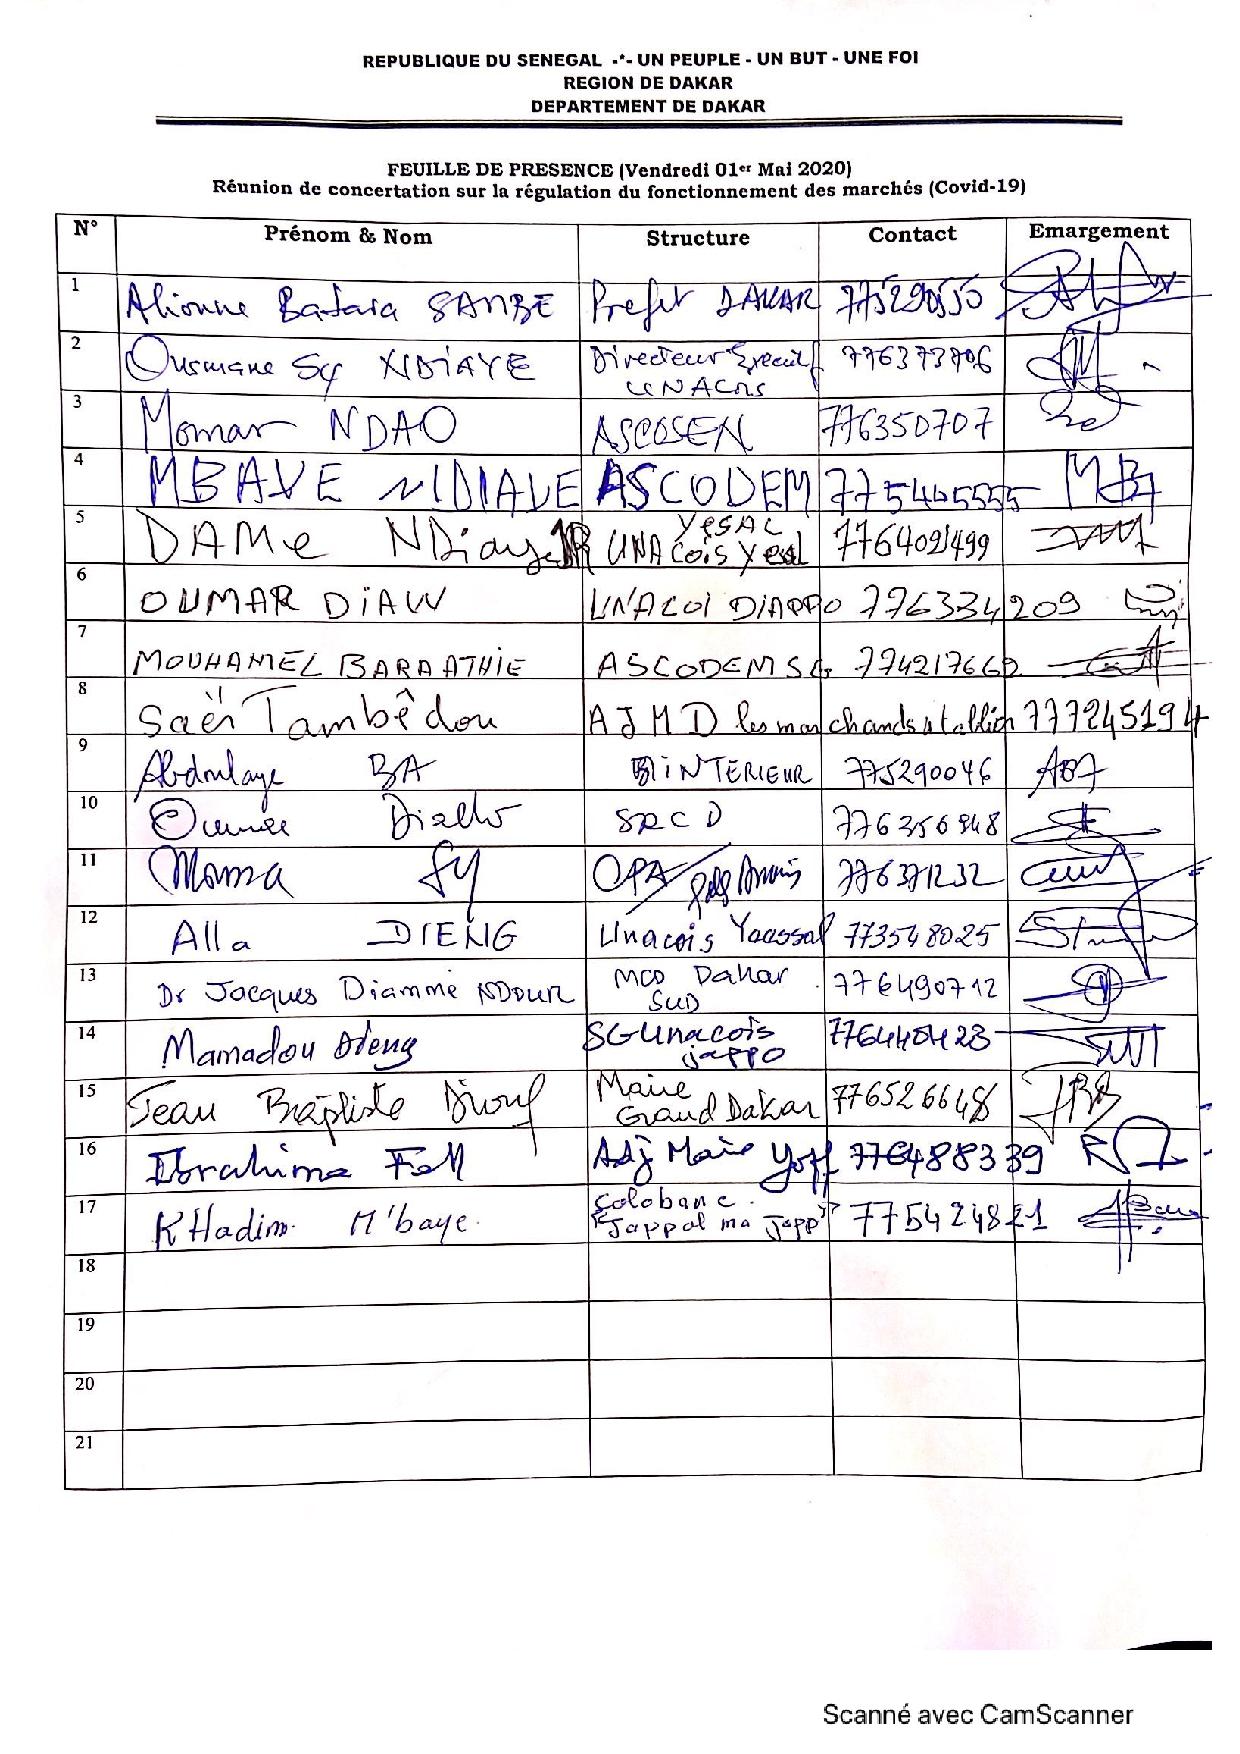 REPUBLIQUE DU SENEGAL -*- UN PEUPLE - UN BUT - UNE FOI
REGION DE DAKAR
DEPARTEMENT DE DAKAR
FEUILLE DE PRESENCE (Vendredi 01er Mai 2020)
Réunion de concertation sur la régulation du fonctionnement des marchés (Covid-19)
N° Prénom & Nom Structure Contact Emargement
1 Alioune Badara SAMBE Prefet DAKAR 775290550
2 Ousmane Sy NDIAYE Directeur Executif 776373706
UNACOIS
3 Momar NDAO ASCOSEN 776350707
4 MBAYE NDIAYE ASCODEM 775445555
5 DAMe NDiaye UNACois Yessal 776402499
YeSAL
6 OUMAR DIAW UNACOI DIAPPO 776334209
7 MOUHAMED BARA ATHIE ASCODEM SG 774217662
8 Saër Tambêdou AJMD les marchands 777245194
9 Abdoulaye BA INTERIEUR 775290046
10 Diallo SRCD 776356948
11 Moma Sy OPA 776371232
12 Alla DIENG Unacois Yaassal 773548025
13 Dr Jacques Diamme NDOUR MCD Dakar 776490712
SUD
14 Mamadou Dieng SG Unacois 776440428
jappo
15 Jean Baptiste Diouf Maire 776526648
Grand Dakar
16 Ibrahima Fall Adj Maire Yoff 776488339
17 KHadim M'baye Colobane 775424821
Jappal ma Japp
18
19
20
21
Scanné avec CamScanner